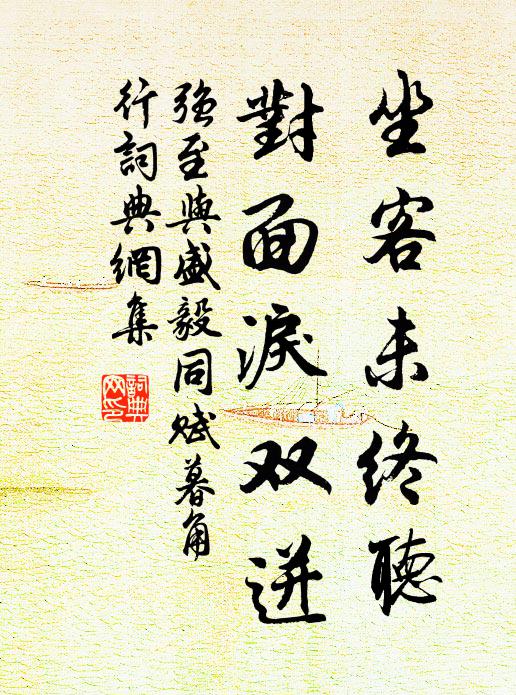 坐客未终聽
對面淚双迸
強至與盛毅同赋暮角
行詞典網集
詞典
网印